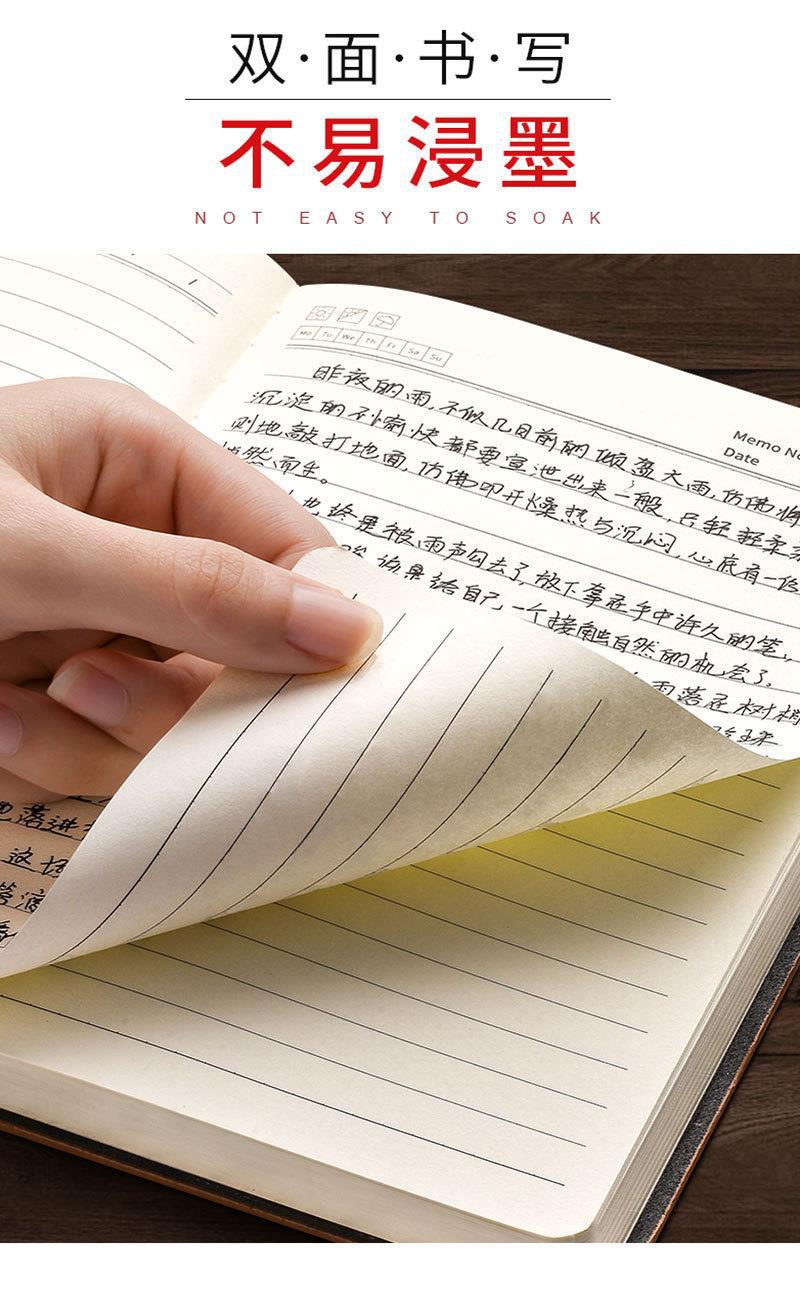 双·面·书·写
不易浸墨
NOT EASY TO SOAK
Mo Tu We Th Fr Sa Su
Memo No
Date
昨夜的雨,不似几日前的倾盈大雨,仿佛将
沉淀的不愉快都要宣泄出来一般,只轻轻柔柔
刷地敲打地面,仿佛叩开燥热与沉闷,心底有一份
悄然而生。
也终是被雨声勾去了,放下拿在手中许久的笔,
该是给自己,一个接触自然的机会了。
雨落在树梢
珠
地落进
这场
管滴